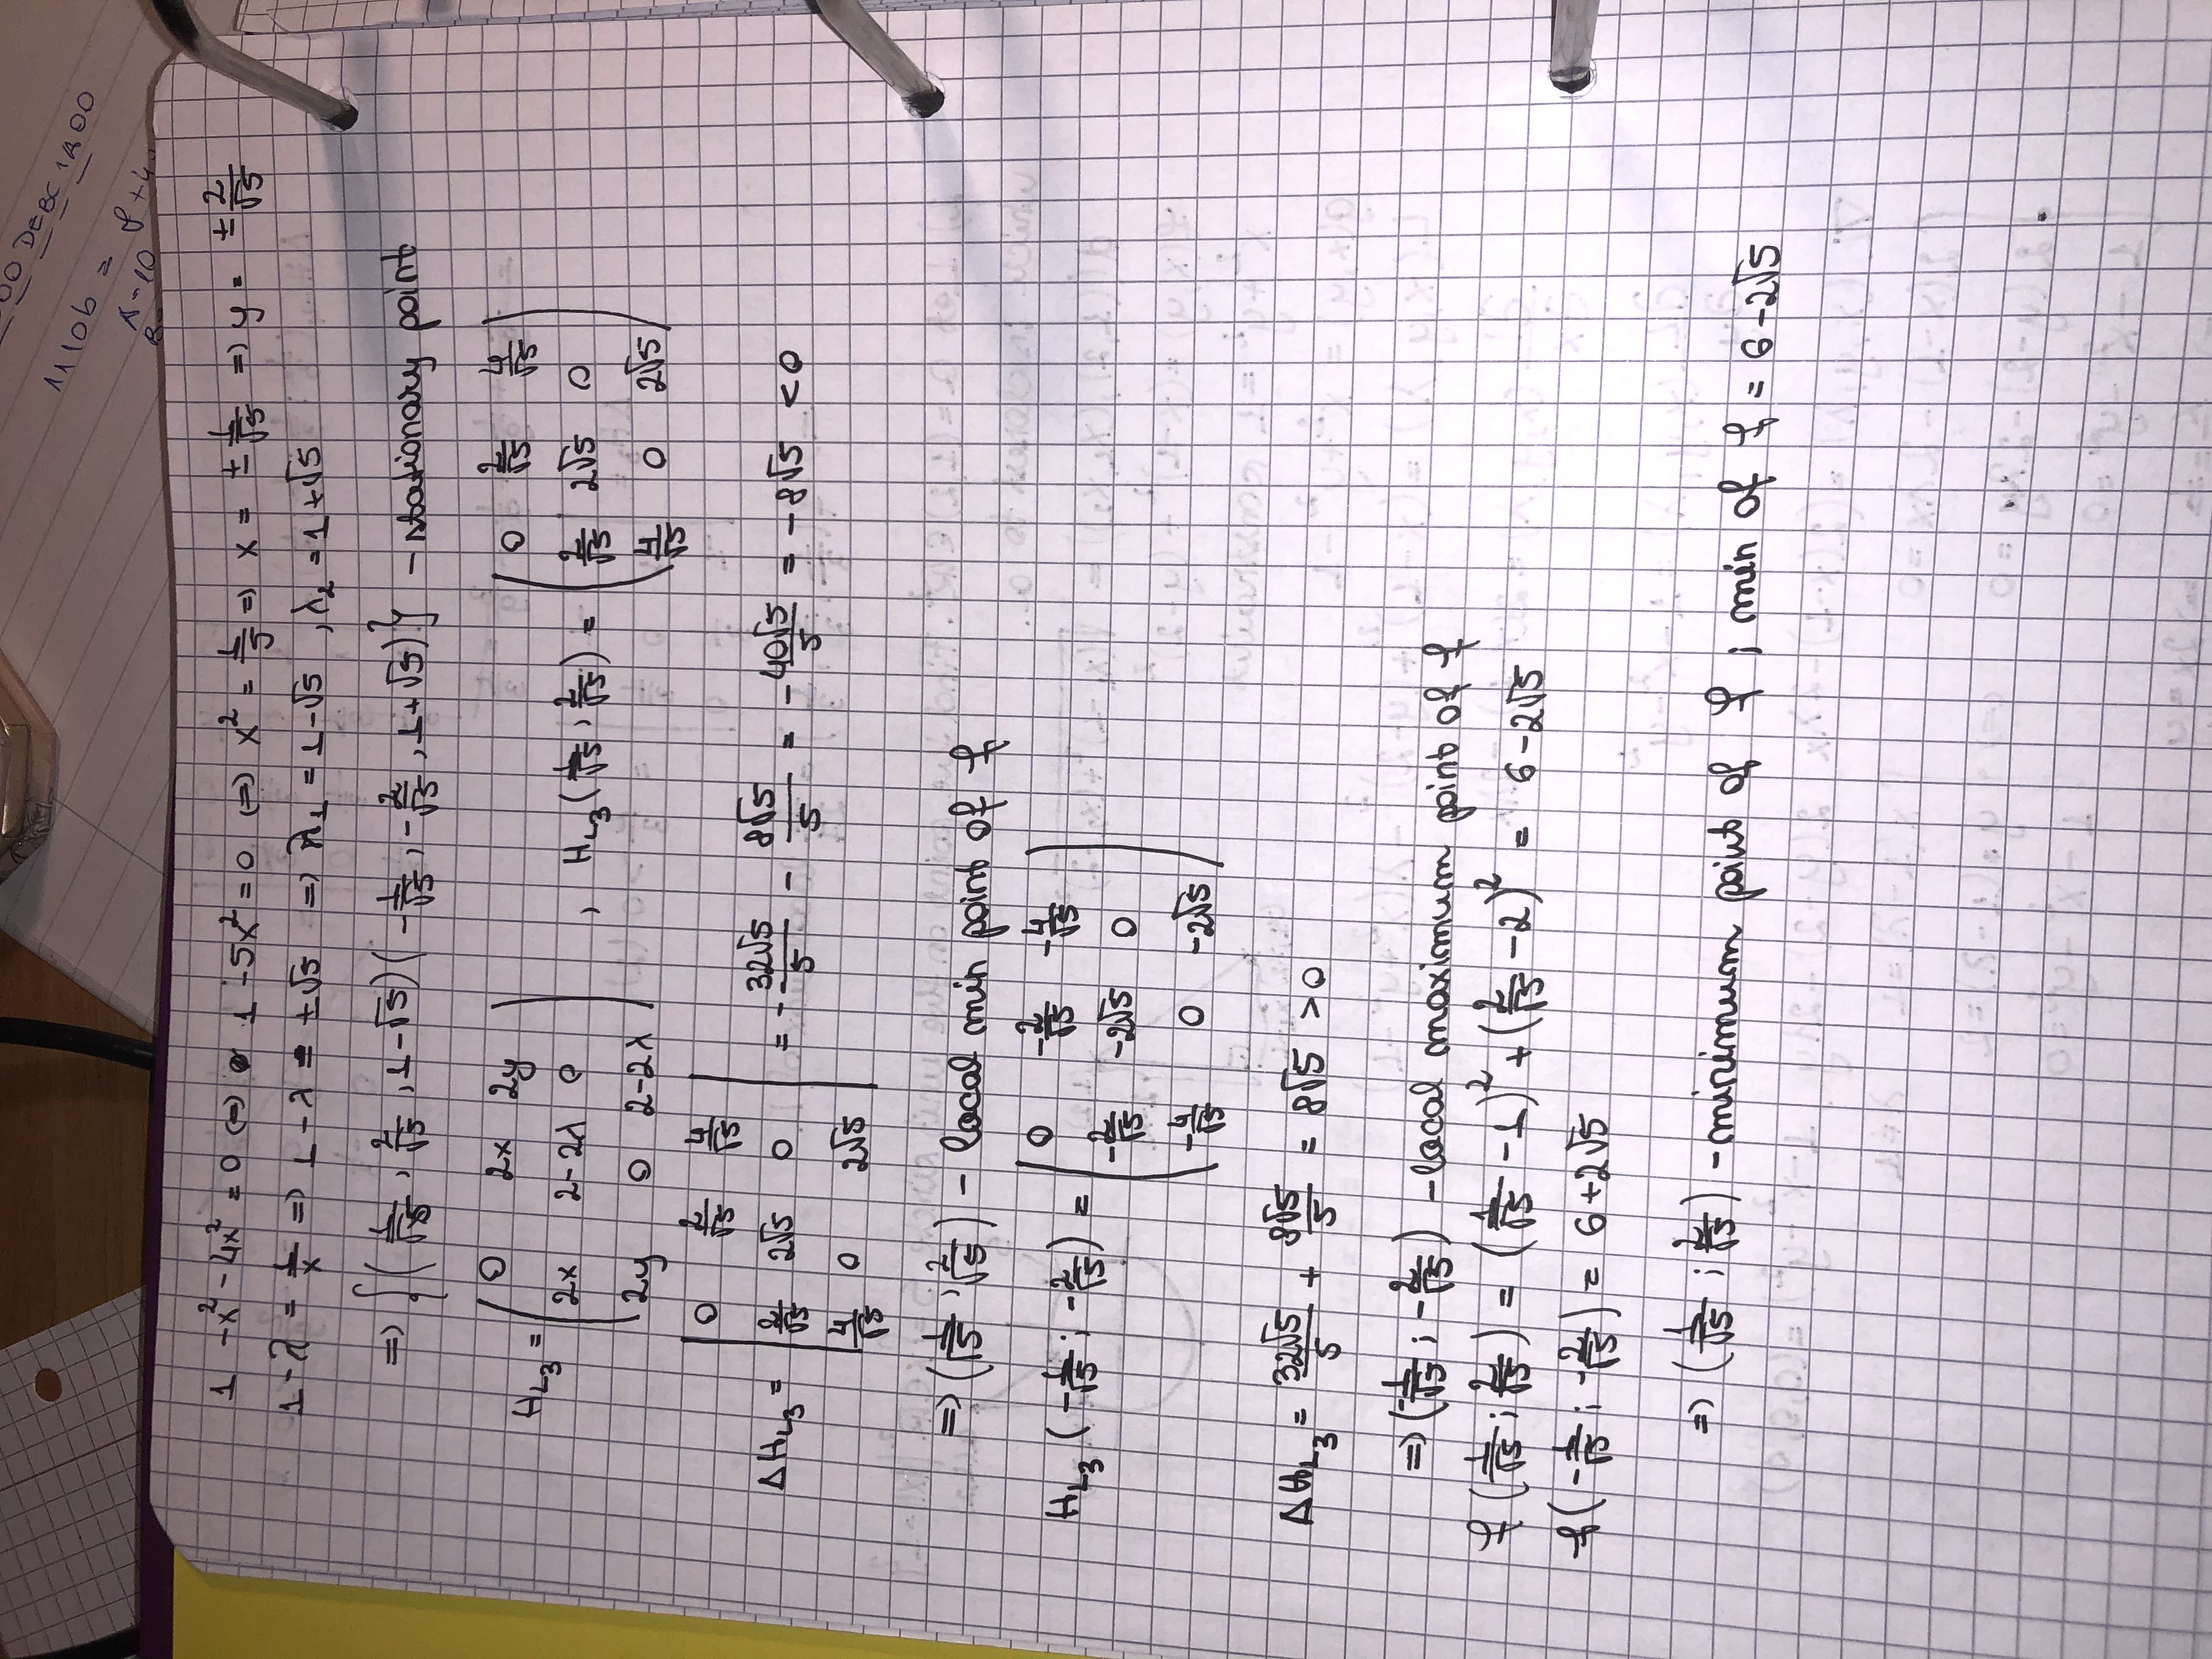 00 DEBC 1A00
1110b =
A-10 8+4
1 - x² - 4x² = 0 (=) 1 - 5x² = 0 (=) x² = 1/5 => x = ± 1/√5 => y = ± 2/√5
1 - λ = 1/x => 1 - λ = ±√5 => λ₁ = 1 - √5 , λ₂ = 1 + √5
=> { ( 1/√5 , 2/√5 , 1 - √5 ) ( - 1/√5 , - 2/√5 , 1 + √5 ) } - stationary point
H_L₃ = ( 0 2x 2y
2x 2-2λ 0
2y 0 2-2λ ) , H_L₃ ( 1/√5 , 2/√5 ) = ( 0 2/√5 4/√5
2/√5 2√5 0
4/√5 0 2√5 )
ΔH_L₃ = | 0 2/√5 4/√5
2/√5 2√5 0
4/√5 0 2√5 | = - 32√5/5 - 8√5/5 = - 40√5/5 = - 8√5 < 0
=> ( 1/√5 , 2/√5 ) - local min point of f
H_L₃ ( - 1/√5 ; - 2/√5 ) = ( 0 -2/√5 -4/√5
-2/√5 -2√5 0
-4/√5 0 -2√5 )
ΔH_L₃ = 32√5/5 + 8√5/5 = 8√5 > 0
=> ( - 1/√5 ; - 2/√5 ) - local maximum point of f
f ( 1/√5 ; 2/√5 ) = ( 1/√5 - 1 )² + ( 2/√5 - 2 )² = 6 - 2√5
f ( - 1/√5 ; - 2/√5 ) = 6 + 2√5
=> ( 1/√5 ; 2/√5 ) - minimum point of f ; min of f = 6 - 2√5